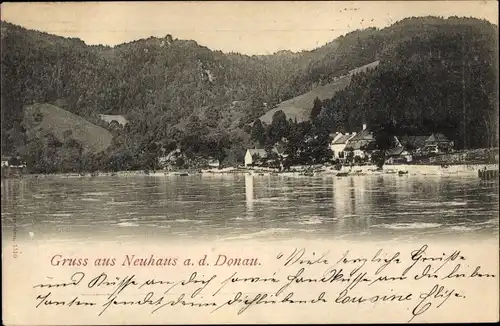 Gruss aus Neuhaus a. d. Donau.
Viele herzliche Grüsse
und Küsse an Dich, sowie Handküsse an die lieben
Tanten, sendet deine dich liebende Cousine Elise.